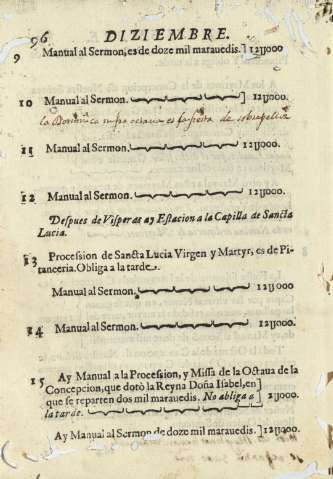 96 DIZIEMBRE.
9 Manual al Sermon, es de doze mil marauedis. 12U000
10 Manual al Sermon. 12U000.
la Dominica infra octava es fiesta de
11 Manual al Sermon. 12U000.
12 Manual al Sermon. 12U000.
Despues de Visperas ay Estacion a la Capilla de Sancta
Lucia.
13 Procession de Sancta Lucia Virgen y Martyr, es de Pi-
tanceria. Obliga a la tarde.
Manual al Sermon. 12U000
14 Manual al Sermon. 12U000.
15 Ay Manual a la Procession, y Missa de la Octaua de la
Concepcion, que dotò la Reyna Doña Isabel, en
que se reparten dos mil marauedis. No obliga a
la tarde. 2U000.
Ay Manual al Sermon de doze mil marauedis. 12U000.